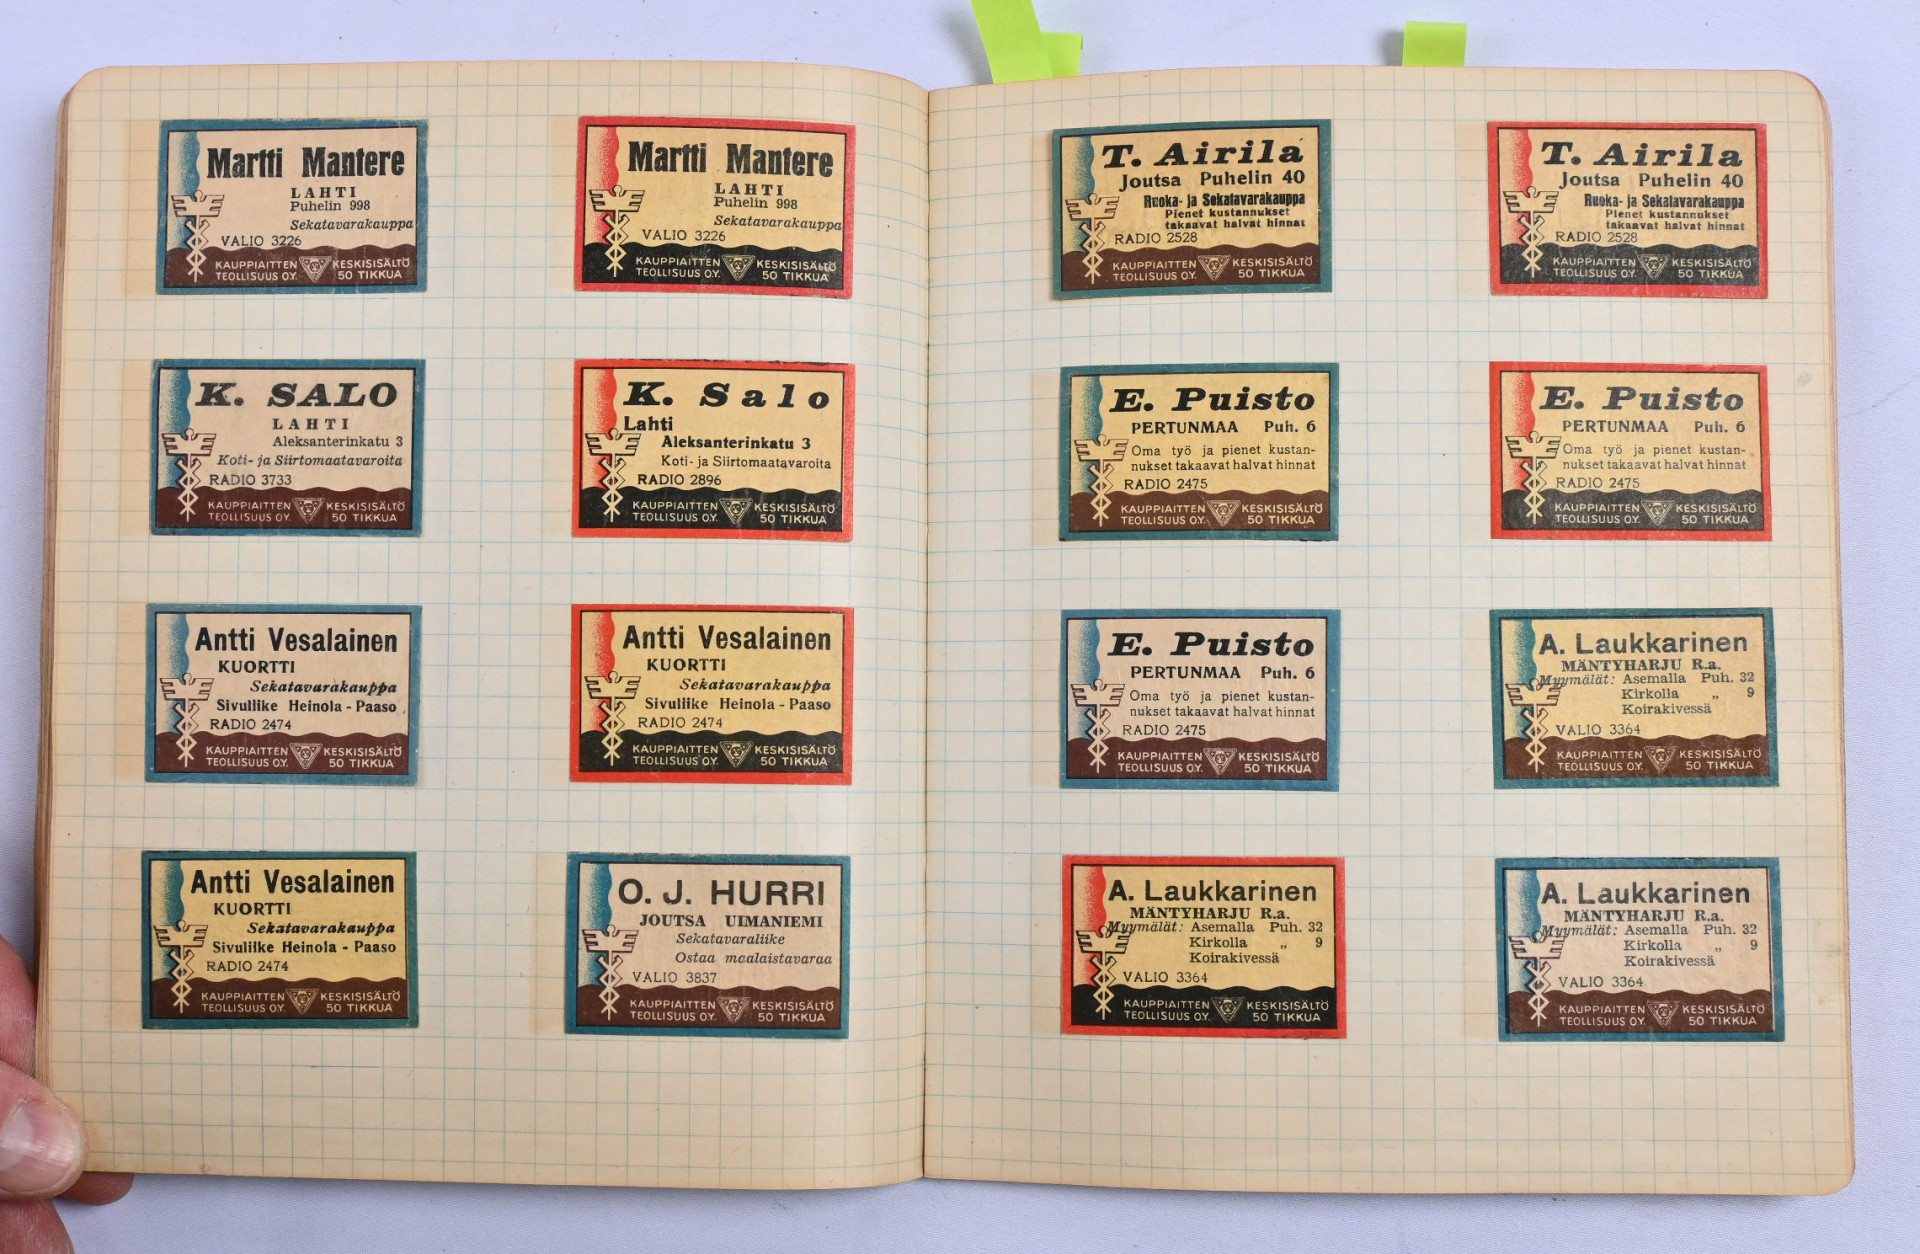 Martti Mantere
LAHTI
Puhelin 998
Sekatavarakauppa
VALIO 3226
KAUPPIAITTEN KESKISISÄLTÖ
TEOLLISUUS O.Y. 50 TIKKUA
Martti Mantere
LAHTI
Puhelin 998
Sekatavarakauppa
VALIO 3226
KAUPPIAITTEN KESKISISÄLTÖ
TEOLLISUUS O.Y. 50 TIKKUA
K. SALO
LAHTI
Aleksanterinkatu 3
Koti- ja Siirtomaatavaroita
RADIO 3733
KAUPPIAITTEN KESKISISÄLTÖ
TEOLLISUUS O.Y. 50 TIKKUA
K. Salo
Lahti
Aleksanterinkatu 3
Koti- ja Siirtomaatavaroita
RADIO 2896
KAUPPIAITTEN KESKISISÄLTÖ
TEOLLISUUS O.Y. 50 TIKKUA
Antti Vesalainen
KUORTTI
Sekatavarakauppa
Sivuliike Heinola - Paaso
RADIO 2474
KAUPPIAITTEN KESKISISÄLTÖ
TEOLLISUUS O.Y. 50 TIKKUA
Antti Vesalainen
KUORTTI
Sekatavarakauppa
Sivuliike Heinola - Paaso
RADIO 2474
KAUPPIAITTEN KESKISISÄLTÖ
TEOLLISUUS O.Y. 50 TIKKUA
Antti Vesalainen
KUORTTI
Sekatavarakauppa
Sivuliike Heinola - Paaso
RADIO 2474
KAUPPIAITTEN KESKISISÄLTÖ
TEOLLISUUS O.Y. 50 TIKKUA
O. J. HURRI
JOUTSA UIMANIEMI
Sekatavaraliike
Ostaa maalaistavaraa
VALIO 3837
KAUPPIAITTEN KESKISISÄLTÖ
TEOLLISUUS O.Y. 50 TIKKUA
T. Airila
Joutsa Puhelin 40
Ruoka- ja Sekatavarakauppa
Pienet kustannukset
takaavat halvat hinnat
RADIO 2528
KAUPPIAITTEN KESKISISÄLTÖ
TEOLLISUUS O.Y. 50 TIKKUA
T. Airila
Joutsa Puhelin 40
Ruoka- ja Sekatavarakauppa
Pienet kustannukset
takaavat halvat hinnat
RADIO 2528
KAUPPIAITTEN KESKISISÄLTÖ
TEOLLISUUS O.Y. 50 TIKKUA
E. Puisto
PERTUNMAA Puh. 6
Oma työ ja pienet kustan-
nukset takaavat halvat hinnat
RADIO 2475
KAUPPIAITTEN KESKISISÄLTÖ
TEOLLISUUS O.Y. 50 TIKKUA
E. Puisto
PERTUNMAA Puh. 6
Oma työ ja pienet kustan-
nukset takaavat halvat hinnat
RADIO 2475
KAUPPIAITTEN KESKISISÄLTÖ
TEOLLISUUS O.Y. 50 TIKKUA
E. Puisto
PERTUNMAA Puh. 6
Oma työ ja pienet kustan-
nukset takaavat halvat hinnat
RADIO 2475
KAUPPIAITTEN KESKISISÄLTÖ
TEOLLISUUS O.Y. 50 TIKKUA
A. Laukkarinen
MÄNTYHARJU R.a.
Myymälät: Asemalla Puh. 32
Kirkolla „ 9
Koirakivessä
VALIO 3364
KAUPPIAITTEN KESKISISÄLTÖ
TEOLLISUUS O.Y. 50 TIKKUA
A. Laukkarinen
MÄNTYHARJU R.a.
Myymälät: Asemalla Puh. 32
Kirkolla „ 9
Koirakivessä
VALIO 3364
KAUPPIAITTEN KESKISISÄLTÖ
TEOLLISUUS O.Y. 50 TIKKUA
A. Laukkarinen
MÄNTYHARJU R.a.
Myymälät: Asemalla Puh. 32
Kirkolla „ 9
Koirakivessä
VALIO 3364
KAUPPIAITTEN KESKISISÄLTÖ
TEOLLISUUS O.Y. 50 TIKKUA